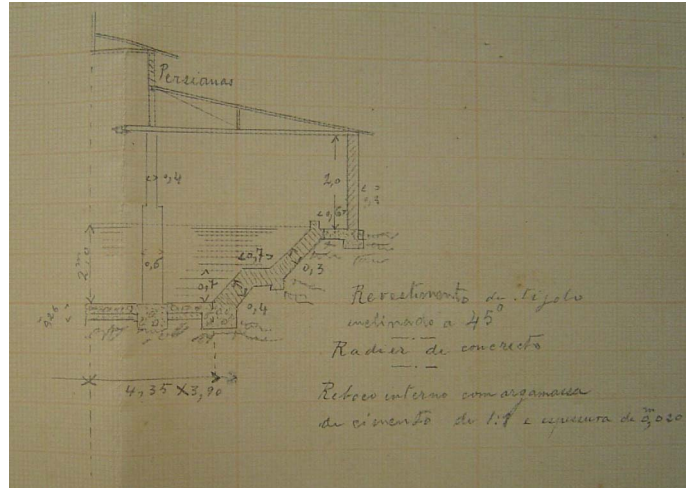 Persianas
0,4
2,0
0,3
0,6
2,0 m
0,6
0,7
0,7
0,3
0,4
4,35 X 3,90
Revestimento de tijolo
inclinado a 45°
Radier de concreto
Reboco interno com argamassa
de cimento de 1: e espessura de 0,020 m